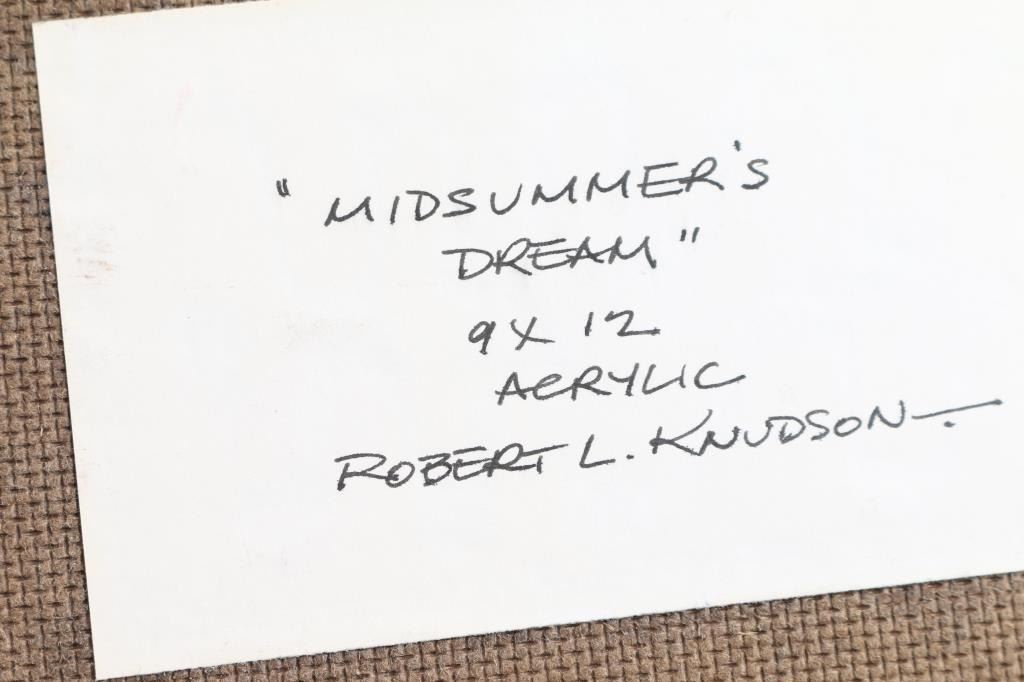 "MIDSUMMER'S
DREAM"
9 X 12
ACRYLIC
ROBERT L. KNUDSON